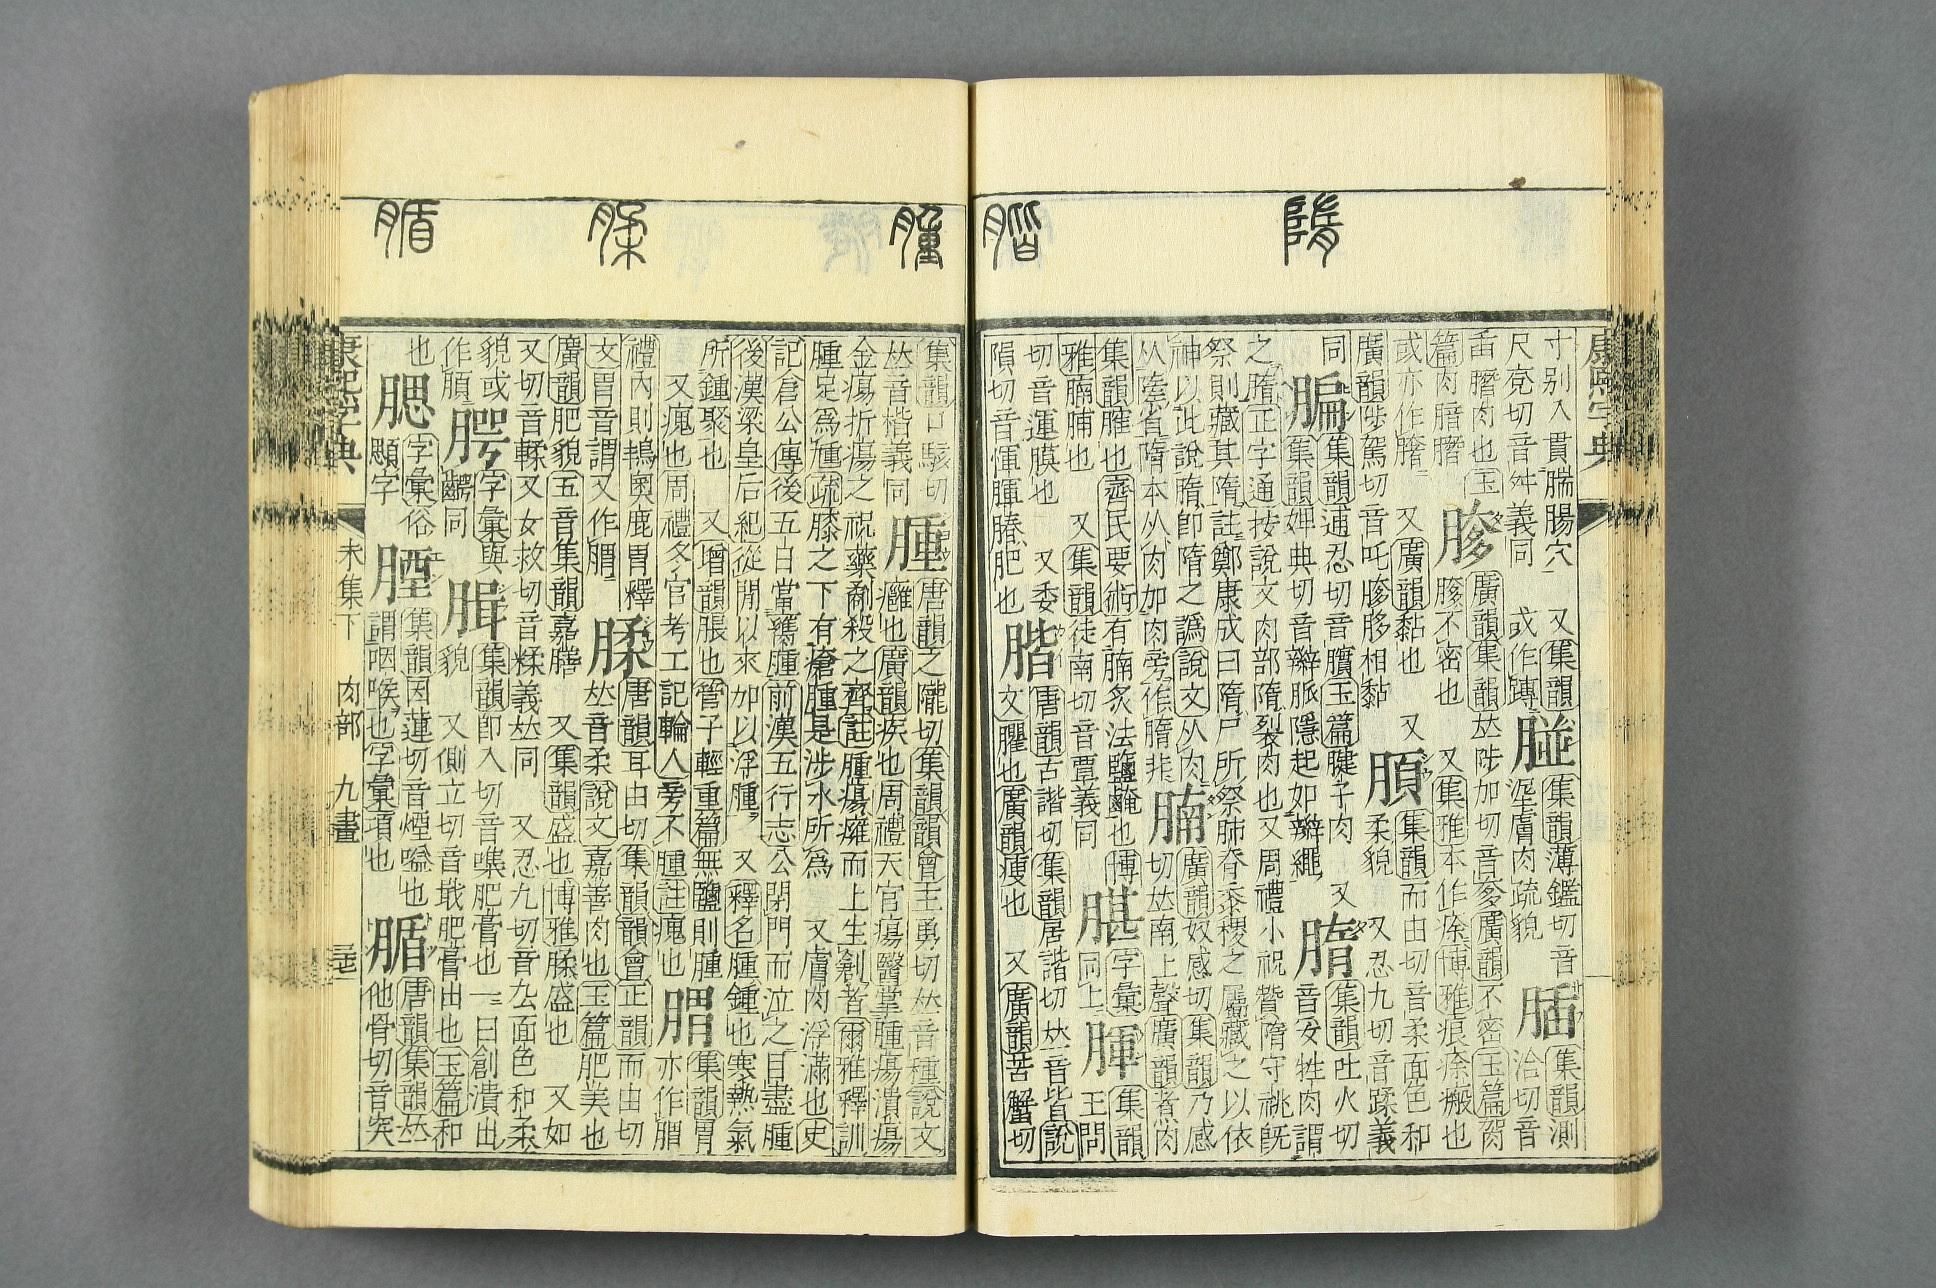 康熙字典
隋 腯 腬 腫 腊
寸别入貫腨腸穴 又集韻
尺兗切音舛義同 或作膞
集韻薄鑑切音
埿膚肉疏貌
集韻測
洽切音
臿肉也玉
篇肉
䐒
廣韻集韻𠀤陟加切音奓廣韻不密玉篇䐒
䐒不密也 又集雅本作瘵博雅痕瘵瘢也
或亦作 又廣韻黏也
廣韻陟駕切音吒䐒䏧相黏 又
集韻而由切音柔面色和
柔貌 又忍九切音蹂義
同
集韻逋忍切音臏玉篇腱子肉 又
集韻婢典切音辮脈隱起如辮繩
集韻吐火切
音妥牲肉謂
之隋正字通按說文肉部隋裂肉也又周禮小祝贊隋守祧旣
祭則藏其隋註鄭康成曰隋尸所祭肺脊黍稷之屬藏之以依
神以此說隋卽隋之譌說文从肉
从隓省隋本从肉加肉旁作隋非
腩
廣韻奴感切集韻乃感
切𠀤南上聲廣韻煮肉
集韻臛也齊民要術有腩炙法鹽醃也博
雅腩脯也 又集韻徒南切音覃義同
腜
字彙
同上
腪
集韻
王問
切音運膜也 又委
隕切音惲腪䐏肥也
腊
唐韻古諧切集韻居諧切𠀤音皆說
文臞也廣韻瘦也 又廣韻苦蟹切
集韻口駭切
𠀤音楷義同
腫
唐韻之隴切集韻韻會主勇切𠀤音種說文
癰也廣韻疾也周禮天官瘍醫掌腫瘍潰瘍
金瘍折瘍之祝藥劀殺之齊註腫瘍癰而上生創者爾雅釋訓
腫足爲尰疏膝之下有瘡腫是涉水所爲 又膚肉浮滿也史
記倉公傳後五日當𦡳腫前漢五行志公閉門而泣之目盡腫
後漢梁皇后紀從閒以來加以浮腫 又釋名腫鍾也寒熱氣
所鍾聚也 又增韻脹也管子輕重篇無鹽則腫
又瘣也周禮冬官考工記輪人旁不腫註瘣也
䐔
集韻胃
亦作腪
禮內則鴇奧鹿胃釋
文胃音謂又作
腬
唐韻耳由切集韻韻會正韻而由切
𠀤音柔說文嘉善肉也玉篇肥美也
廣韻肥貌五音集韻嘉膳 又集韻盛也博雅腬盛也 又如
又切音輮又女救切音糅義𠀤同 又忍九切音厹面色和柔
貌或
作
腭
字彙與
齶同
腢
集韻卽入切音㗱肥膏也一曰創潰出
貌 又側立切音戢肥膏出也玉篇和
也
腮
字彙俗
顋字
䐃
集韻因蓮切音煙嗌也
謂咽喉也字彙項也
腯
唐韻集韻𠀤
他骨切音突
康熙字典 未集下 肉部 九畫